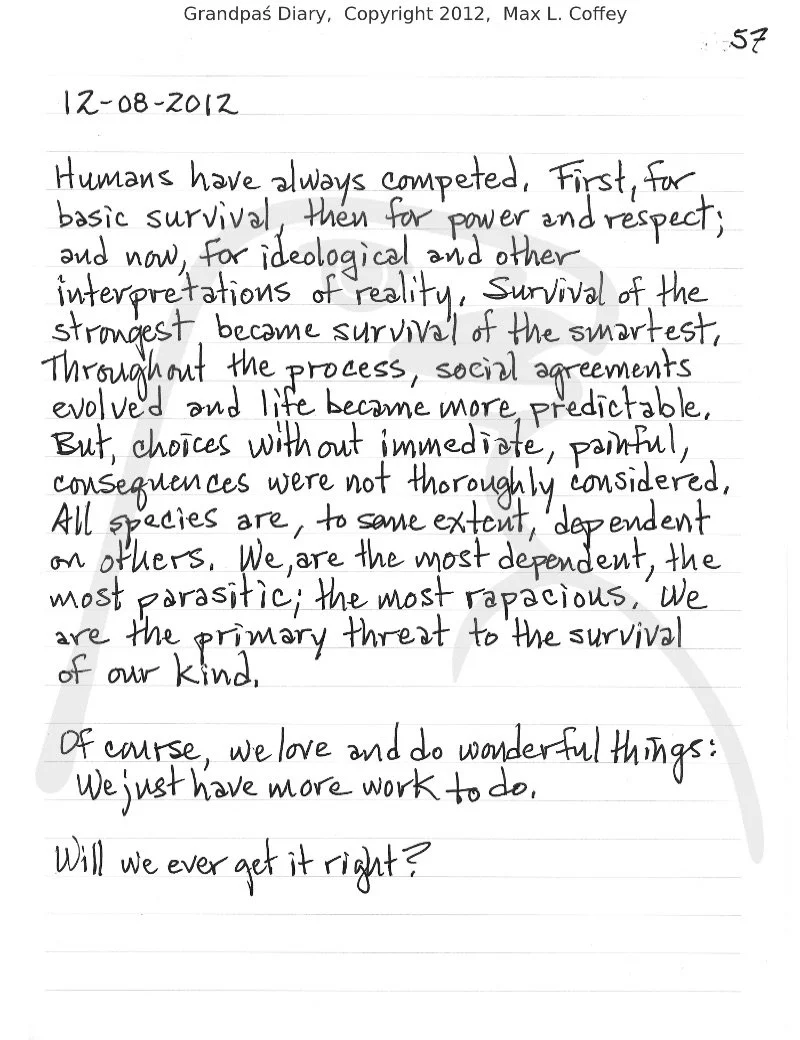 Grandpaś Diary, Copyright 2012, Max L. Coffey
57
12-08-2012
Humans have always competed. First, for
basic survival, then for power and respect;
and now, for ideological and other
interpretations of reality. Survival of the
strongest, became survival of the smartest.
Throughout the process, social agreements
evolved and life became more predictable.
But, choices without immediate, painful,
consequences were not thoroughly considered.
All species are, to some extent, dependent
on others. We, are the most dependent, the
most parasitic; the most rapacious. We
are the primary threat to the survival
of our kind.
Of course, we love and do wonderful things:
We just have more work to do.
Will we ever get it right?